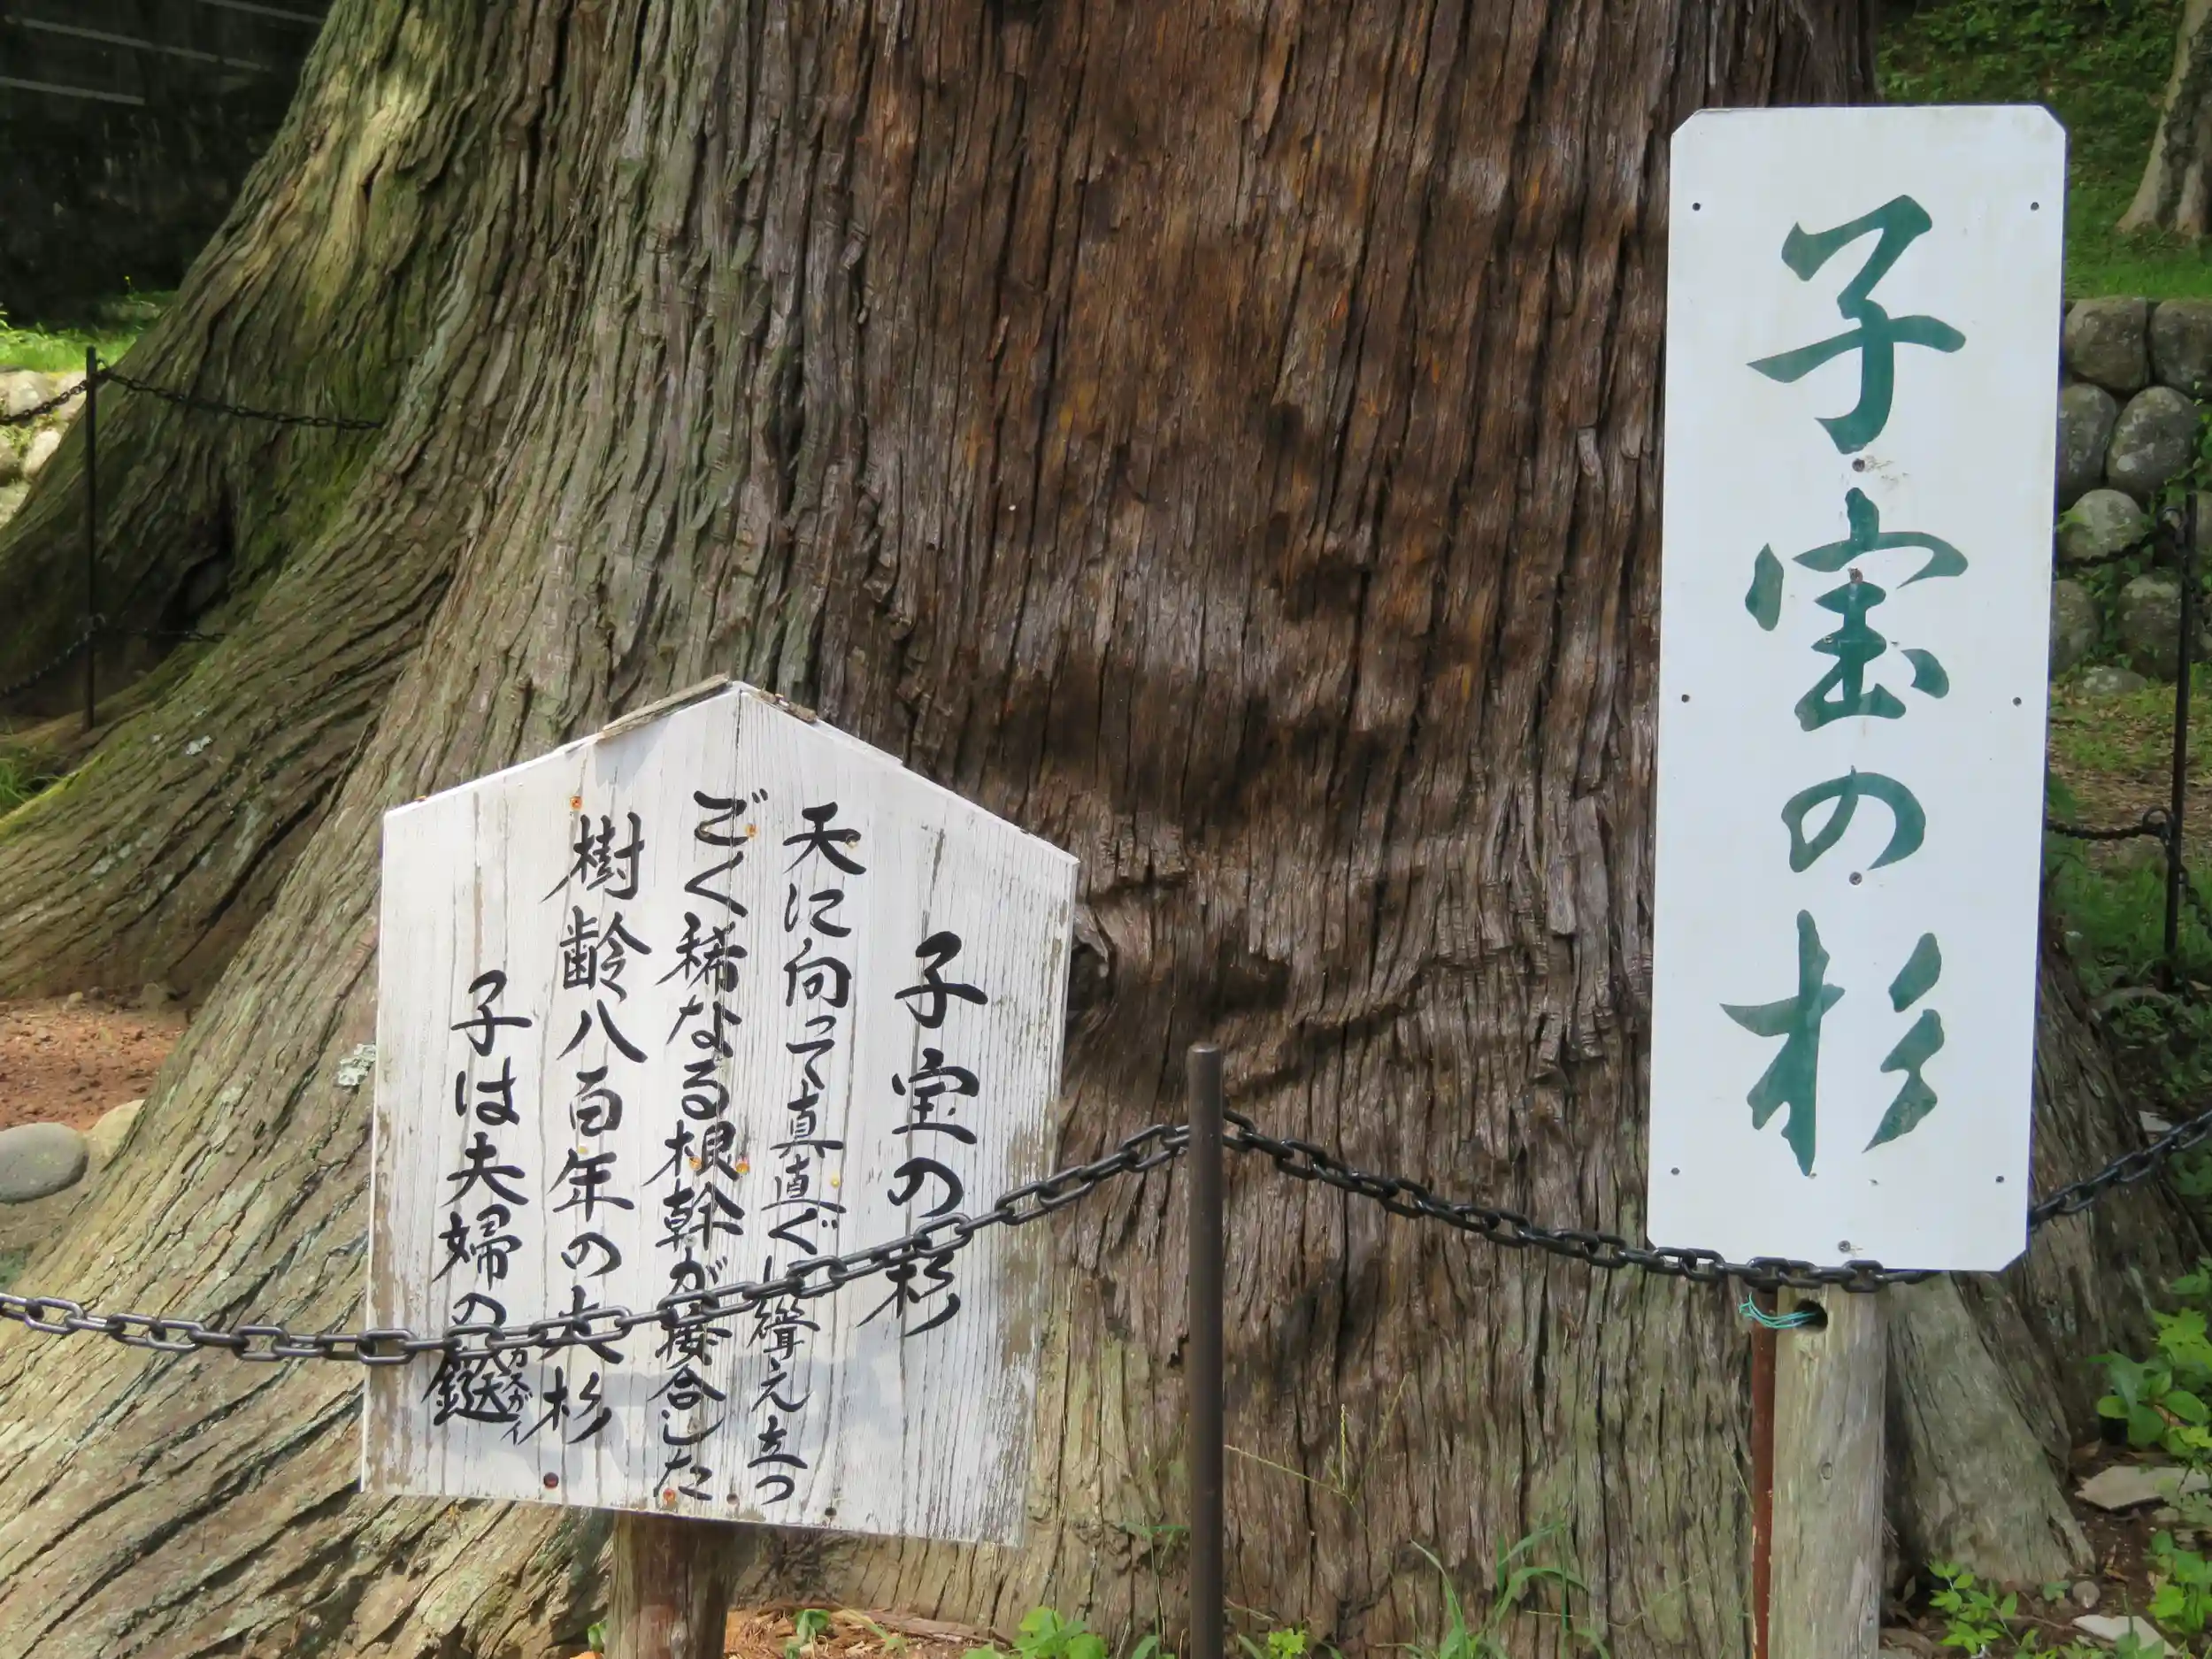 子宝の杉
子宝の杉
天に向って真直ぐに聳え立つ
ごく稀なる根幹が接合した
樹齢八百年の大杉
子は夫婦の鎹
カスガイ